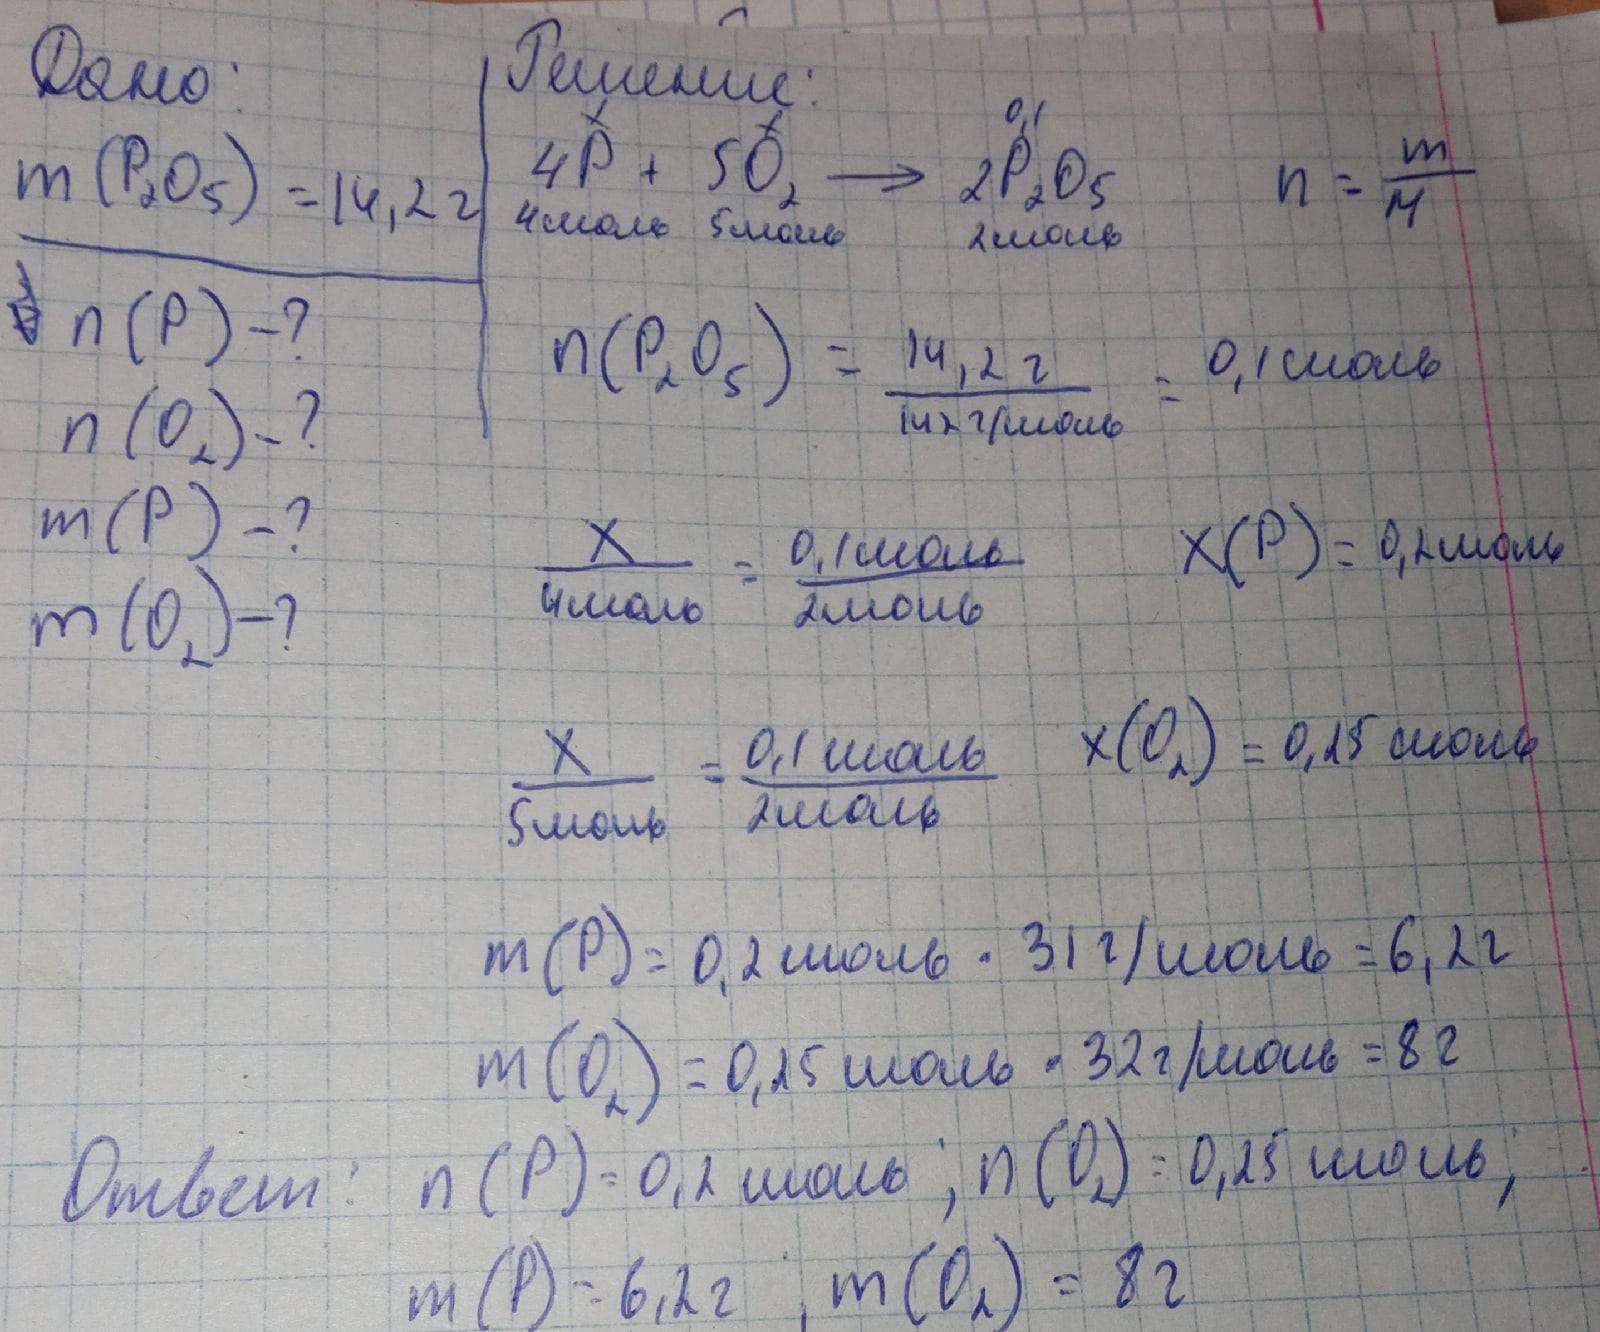 Дано:
m(P₂O₅) = 14,2 г
n(P) - ?
n(O₂) - ?
m(P) - ?
m(O₂) - ?
Решение:
x x 0,1
4P + 5O₂ → 2P₂O₅ n = m/M
4моль 5моль 2моль
n(P₂O₅) = 14,2 г / 142 г/моль = 0,1 моль
x / 4моль = 0,1 моль / 2моль x(P) = 0,2 моль
x / 5моль = 0,1 моль / 2моль x(O₂) = 0,25 моль
m(P) = 0,2 моль · 31 г/моль = 6,2 г
m(O₂) = 0,25 моль · 32 г/моль = 8 г
Ответ: n(P) = 0,2 моль; n(O₂) = 0,25 моль;
m(P) = 6,2 г; m(O₂) = 8 г